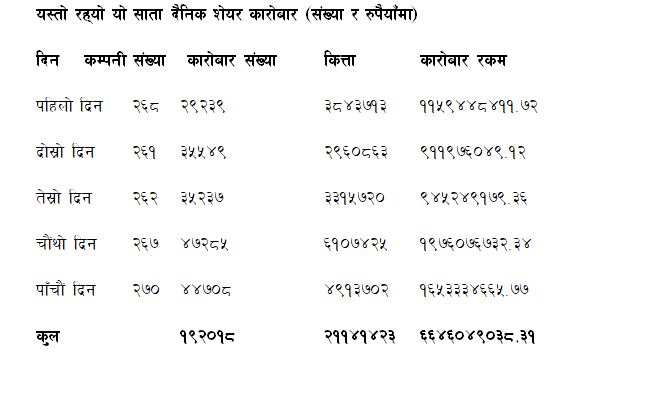 यस्तो रह्यो यो साता दैनिक शेयर कारोबार (संख्या र रुपैयाँमा)
दिन कम्पनी संख्या कारोबार संख्या कित्ता कारोबार रकम
पहिलो दिन २६८ २९२३९ ३८४३७१३ ११५९४४८४११.७२
दोस्रो दिन २६१ ३५५४९ २९६०८६३ ९११९७६०४९.१२
तेस्रो दिन २६२ ३५२३७ ३३१५७२० ९४५२४९१७९.३६
चौंथो दिन २६७ ४७२८५ ६१०७४२५ १९७६०७६७३२.३४
पाँचौं दिन २७० ४४७०८ ४९१३७०२ १६५३३३४६६५.७७
कुल १९२०१८ २११४१४२३ ६६४६०४९०३८.३१